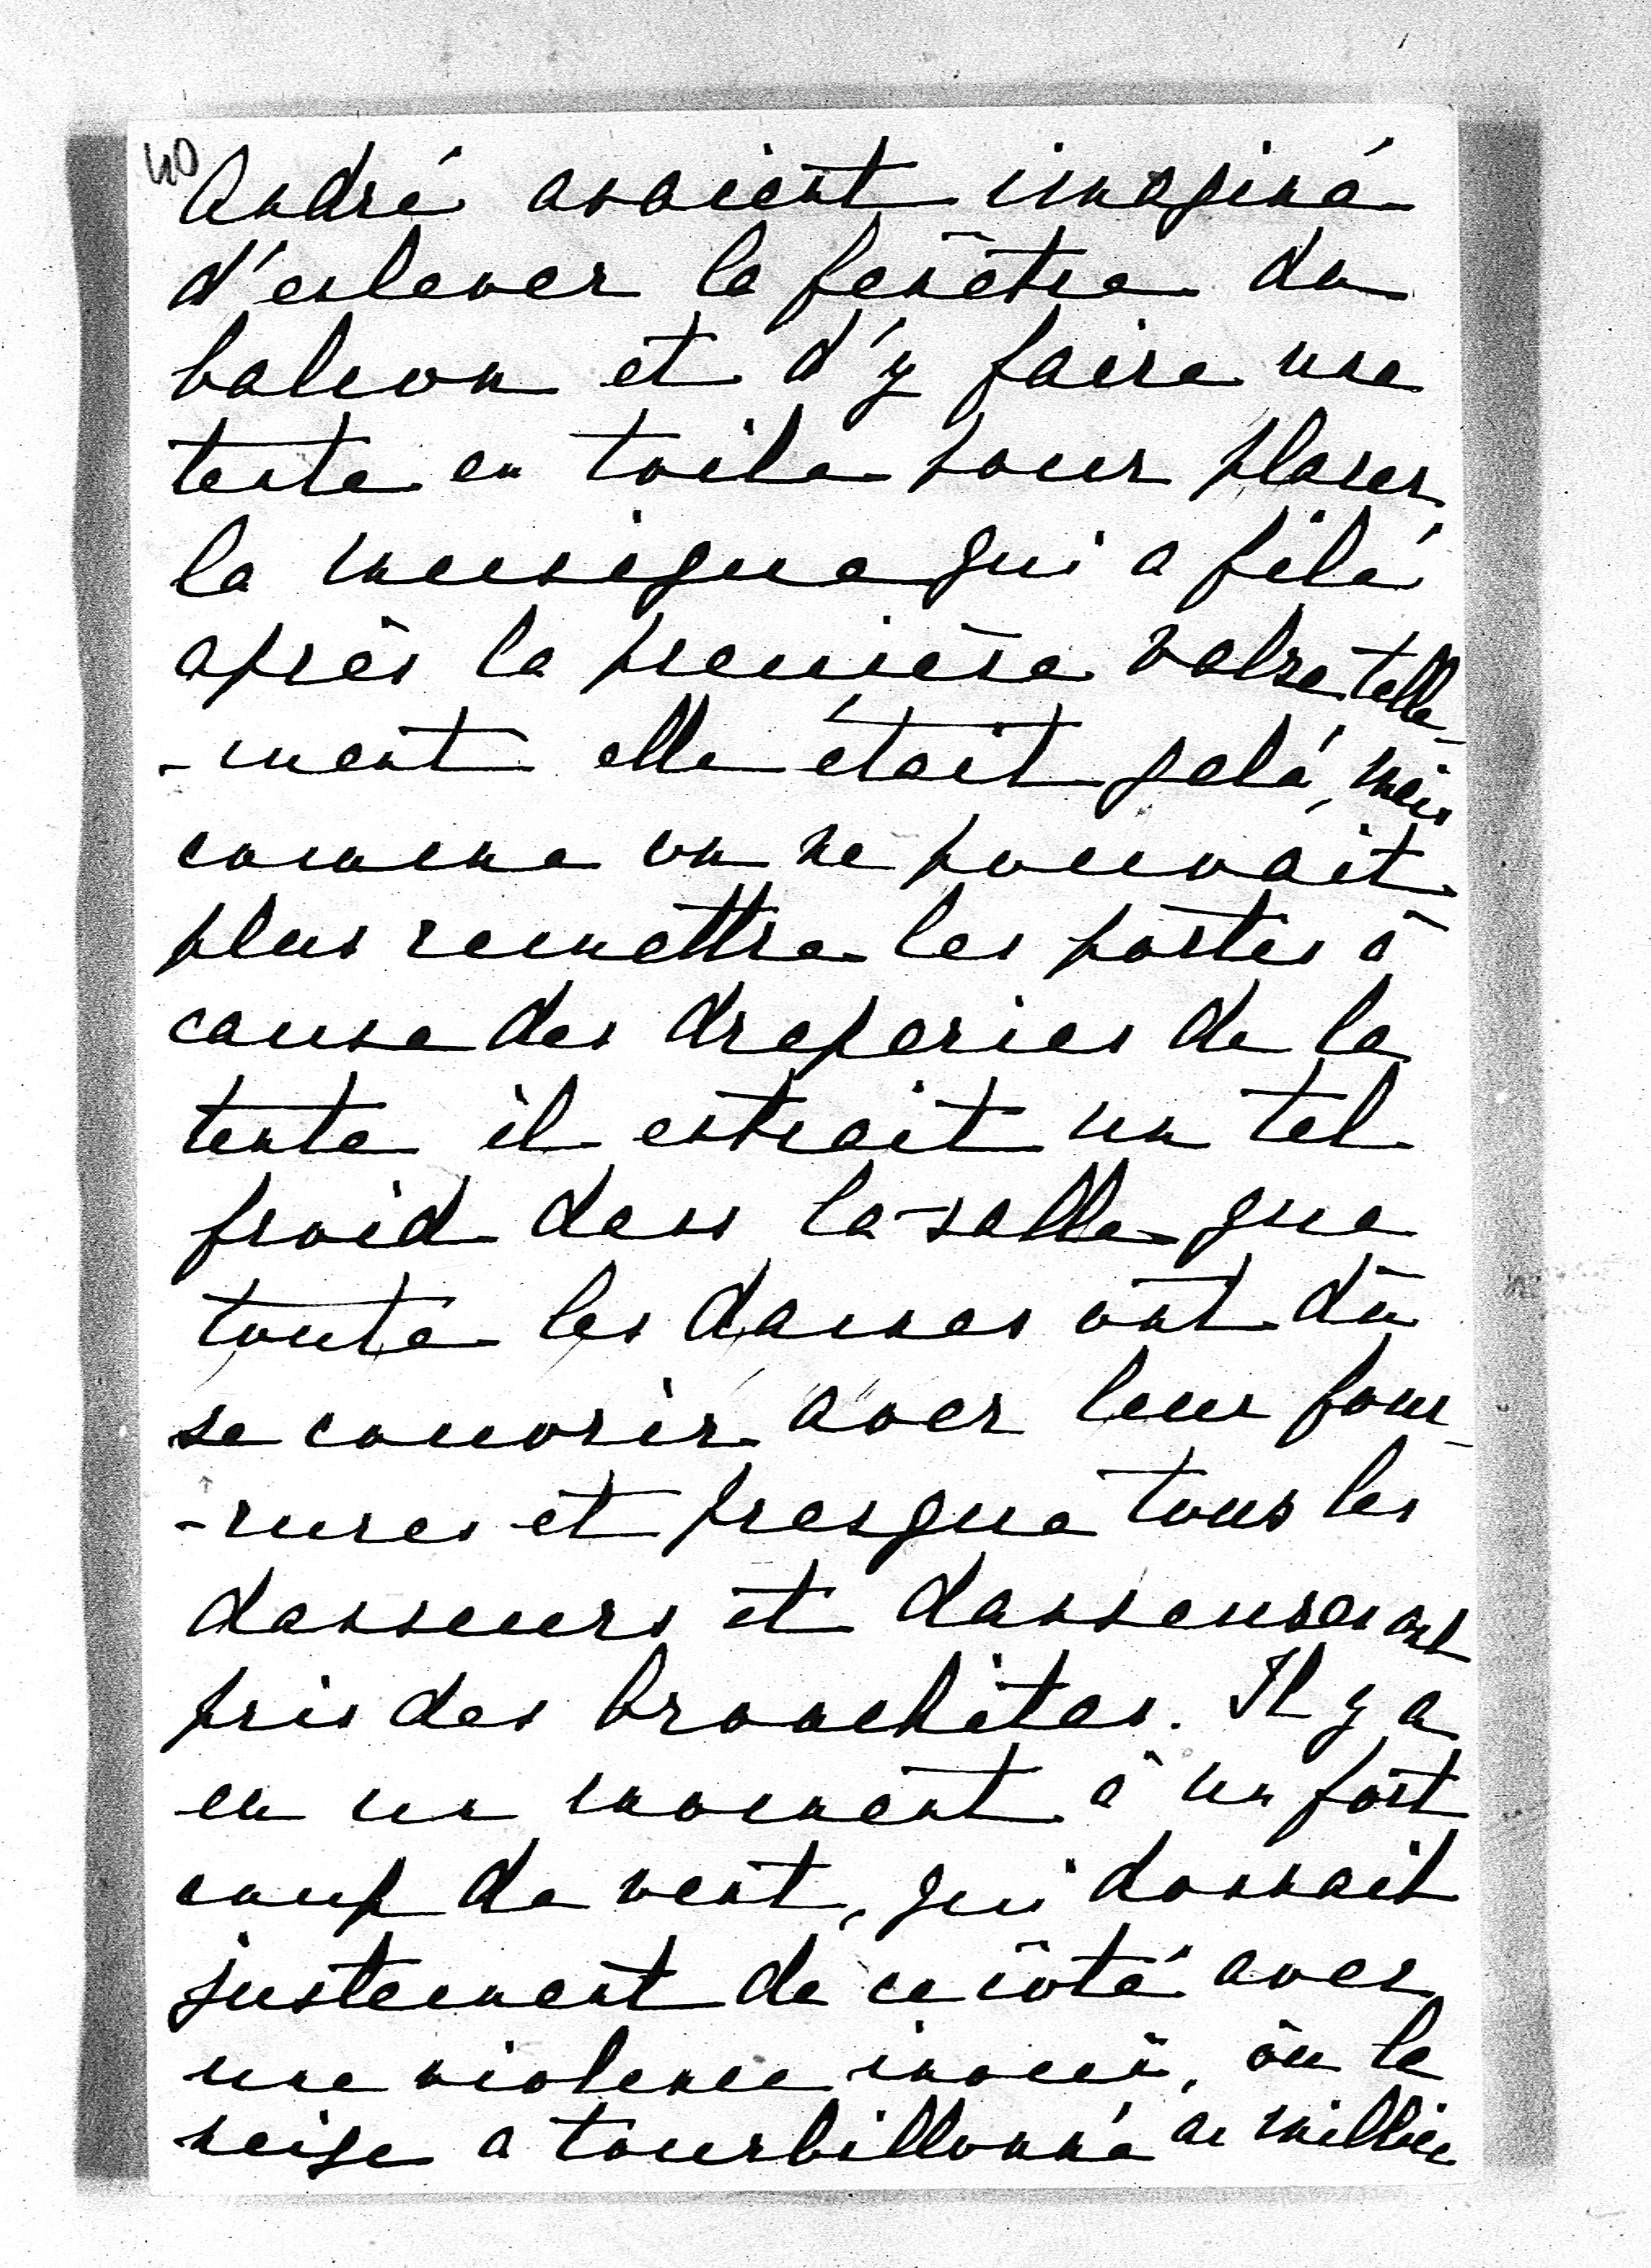 40
André avaient imaginé
d'enlever la fenêtre du
balcon et d'y faire une
tente en toile pour placer
la musique qui a filé
après la première valse telle-
-ment elle était gelé, mais
comme on ne pouvait
plus remettre les portes à
cause des draperies de la
tente il entrait un tel
froid dans la salle que
toute les dames ont dû
se couvrir avec leur four-
-rures et presque tous les
danseurs et danseuses ont
pris des bronchites. Il y a
eu un moment à un fort
coup de vent, qui donnait
justement de ce côté avec
une violence inouïe, où la
neige a tourbillonné au millieu